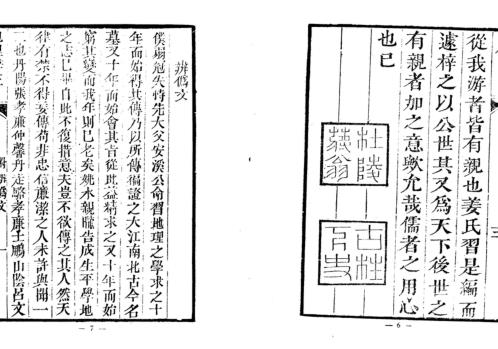 從我游者皆有親也姜氏習是編而
遽梓之以公世其又爲天下後世之
有親者加之意歟允哉儒者之用心
也已
杜陵
三
— 6 —
辨僞文
僕弱冠失恃先大父安溪公命習地理之學求之十
年而始得其傳乃以所傳徧證之大江南北古今名
墓又十年而始會其旨從此益精求之又十年而始
窮其變而我年則已老矣姚水親隴告成生平學地
之志已畢自此不復措意夫豈不欲傳之其人然天
律有禁不得妄傳苟非忠信廉潔之人未許與聞一
二也丹陽張孝廉仲馨丹徒駱孝廉士鵬山陰呂文
— 7 —